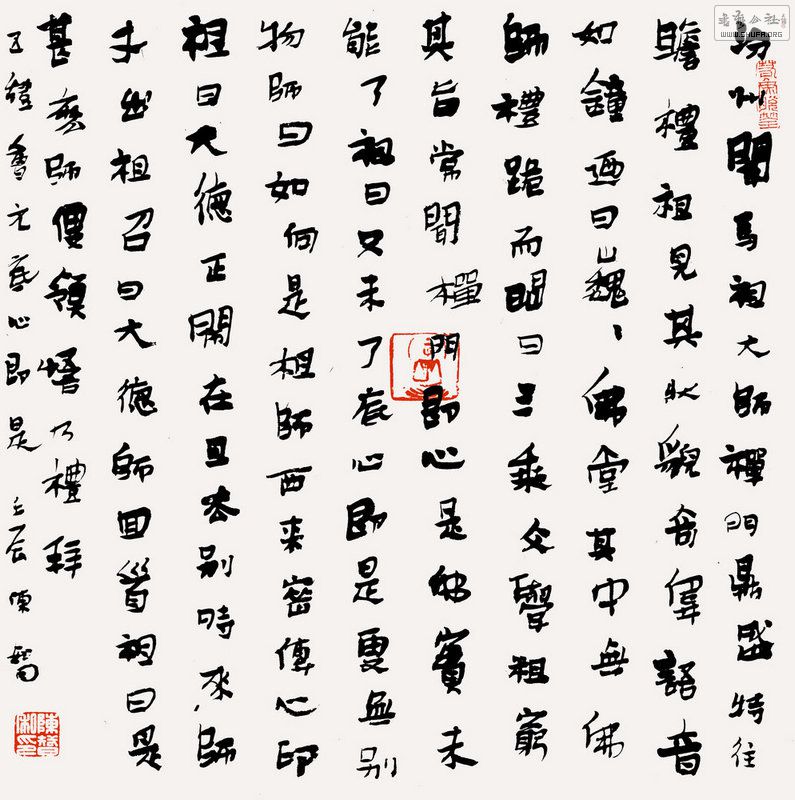 汾州聞馬祖大師禪門鼎盛特往
瞻禮祖見其狀貌奇偉語音
如鐘迺曰巍〻佛堂其中無佛
師禮跪而問曰三乘文學粗窮
其旨常聞禪門即心是佛實未
能了祖曰只未了底心即是更無別
物師曰如何是祖師西来密傳心印
祖曰大德正鬧在且去別時来師
才出祖召曰大德師回首祖曰是
甚麼師便領悟乃禮拜
五燈會元底心即是 壬辰陳
WWW.CHUFA.ORG